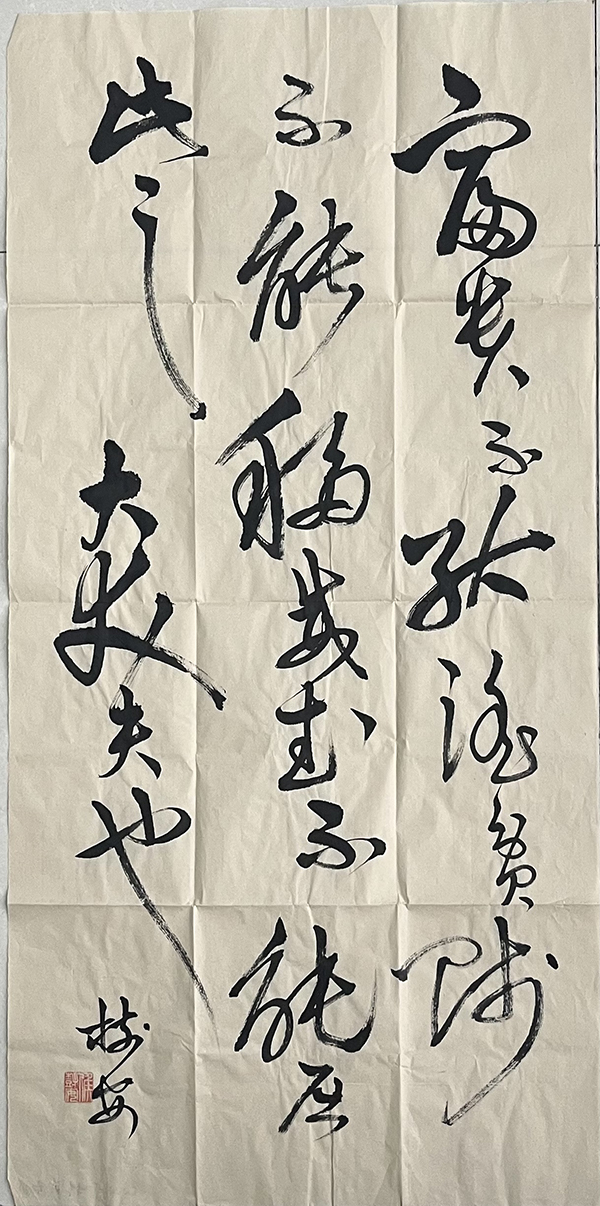 富贵不能淫贫贱
不能移威武不能屈
此之 大丈夫也
树安